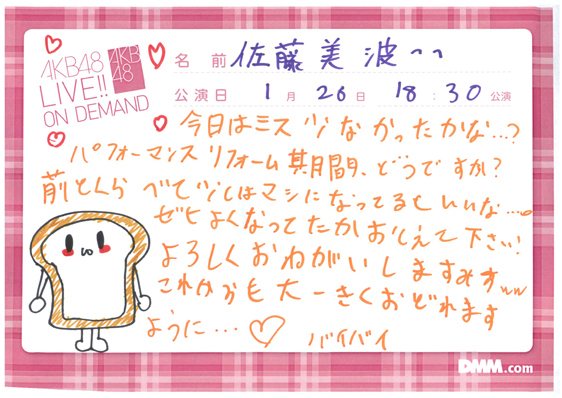 AKB48
LIVE!!
ON DEMAND
AKB
48
名前 佐藤美波
公演日 1月26日 18:30公演
今日はミス少なかったかな…?
パフォーマンスリフォーム期間、どうですか?
前とくらべて少しはマシになってるといいな…。
ぜひよくなってたかおしえて下さい!
よろしくおねがいしますみすww
これからも大ーきくおどれます
ように…♡ バイバイ
DMM.com